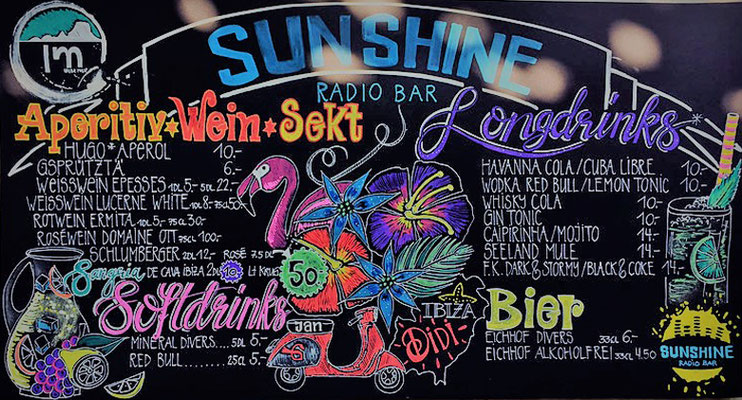 Im
SUNSHINE
RADIO BAR
Aperitiv*Wein*Sekt
HUGO*APEROL 10.-
GSPRÜTZTÄ 6.-
WEISSWEIN EPESSES 1DL 5.- 5DL 22.-
WEISSWEIN LUCERNE WHITE 1DL 8.- 75CL 50.-
ROTWEIN ERMITA 1DL 5.- 75CL 30.-
ROSÉWEIN DOMAINE OTT 75CL 100.-
SCHLUMBERGER 2DL 12.- ROSÉ 7.5DL
Sangria DE CAVA IBIZA 2DL 10.- LT KRUG 50.-
Softdrinks
MINERAL DIVERS....5DL 5.-
RED BULL.........25CL 5.-
Jan
IBIZA
DiDi
Longdrinks*
HAVANNA COLA/CUBA LIBRE 10.-
WODKA RED BULL/LEMON TONIC 10.-
WHISKY COLA 10.-
GIN TONIC 10.-
CAIPIRINHA/MOJITO 14.-
SEELAND MULE 14.-
F.K. DARK & STORMY/BLACK & COKE 14.-
Bier
EICHHOF DIVERS 33CL 6.-
EICHHOF ALKOHOLFREI 33CL 4.50
SUNSHINE
RADIO BAR